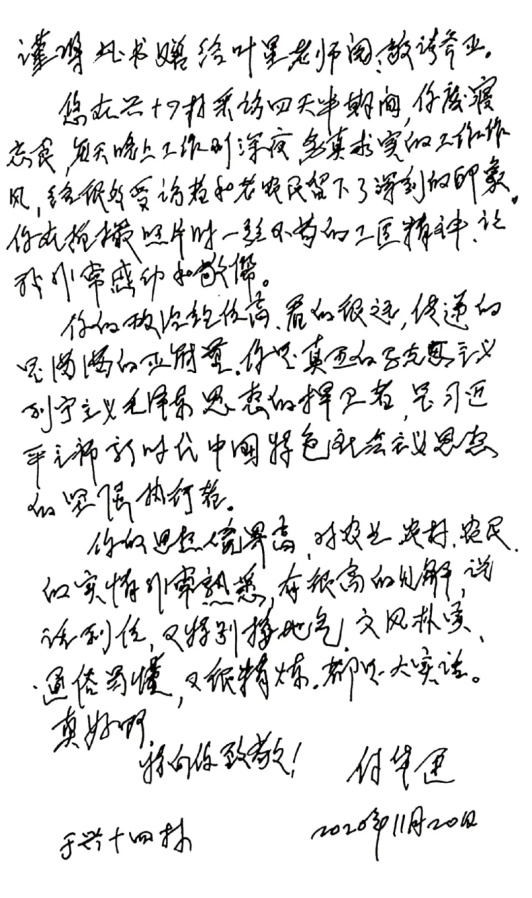 谨将此书赠给叶星老师阅,敬请斧正。
您在兴十四村采访四天半期间,你废寝
忘食,每天晚上工作到深夜,务真求实的工作作
风,给很多受访者和老农民留下了深刻的印象。
你在拍摄照片时一丝不苟的工匠精神,让
我非常感动和敬佩。
你的政治站位高,看的很远,传递的
是满满的正能量。你是真正的马克思主义
列宁主义毛泽东思想的捍卫者,是习近
平主席新时代中国特色社会主义思想
的坚强执行者。
你的思想境界高,对农业、农村、农民
的实情非常熟悉,有很高的见解,说
话到位,又特别接地气,文风朴实、
通俗易懂,又很精炼。都是大实话。
真好啊
我向你致敬!
付华廷
于兴十四村
2020年11月20日